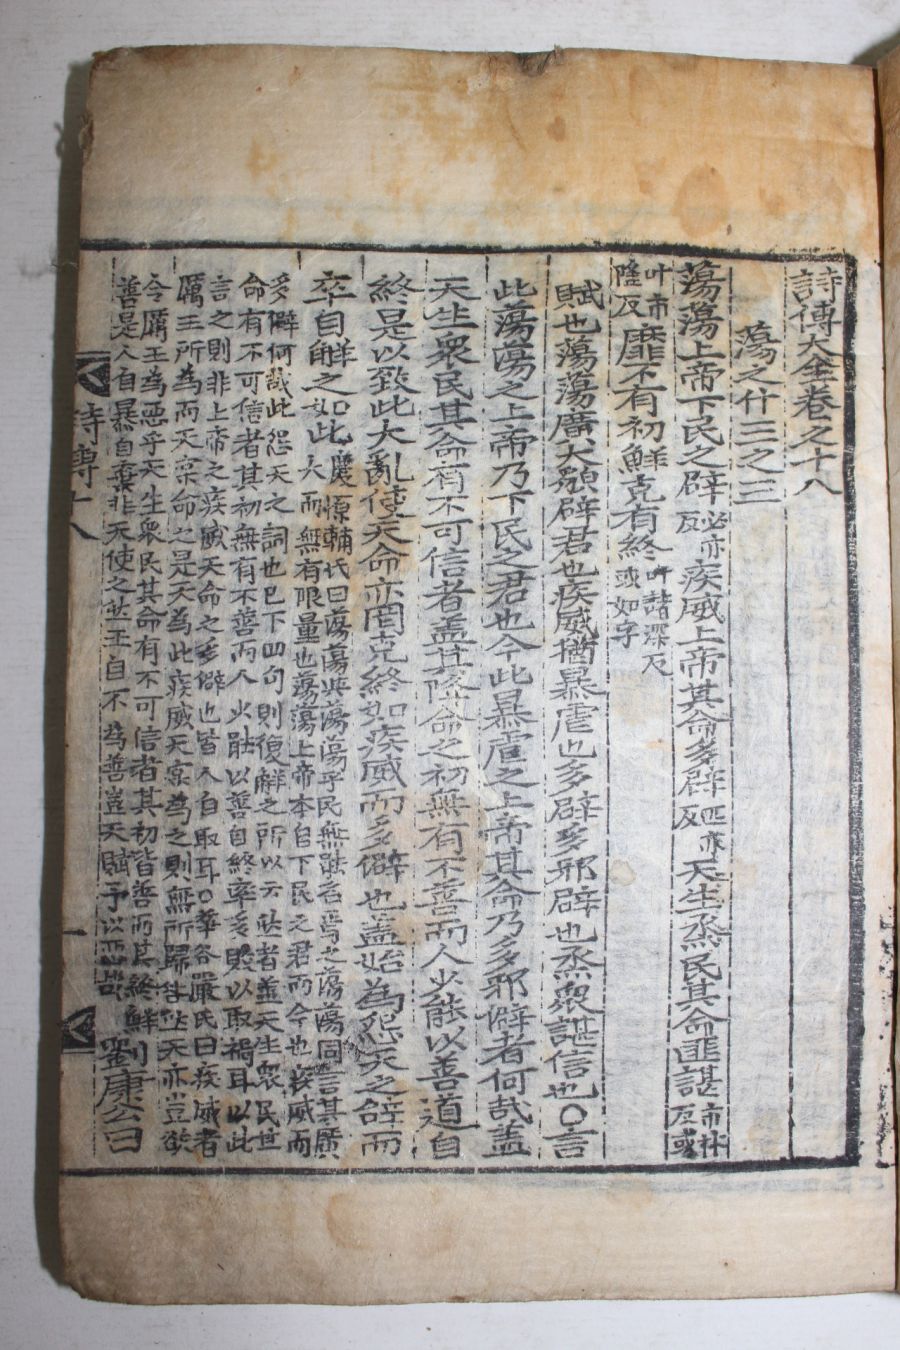 詩傳大全卷之十八
蕩之什三之三
蕩蕩上帝下民之辟必亦反疾威上帝其命多辟匹亦反天生烝民其命匪諶市林反或
叶市隆反靡不有初鮮克有終叶諸深反或如字
賦也蕩蕩廣大貌辟君也疾威猶暴虐也多辟多邪辟也烝衆諶信也○言
此蕩蕩之上帝乃下民之君也今此暴虐之上帝其命乃多邪僻者何哉蓋
天生衆民其命有不可信者蓋其降命之初無有不善而人少能以善道自
終是以致此大亂使天命亦罔克終如疾威而多僻也蓋始爲怨天之辭而
卒自解之如此慶源輔氏曰蕩蕩與蕩蕩乎民無能名焉之蕩蕩同言其廣
大而無有限量也蕩蕩上帝本自下民之君而今也疾威而
多僻何哉此怨天之詞也已下四句則復解之所以云然者蓋天生衆民其
命有不可信者其初無有不善而人少能以善自終率多敗以取禍耳以此
言之則非上帝之疾威天命之多僻也皆人自取耳○華谷嚴氏曰疾威者
厲王所爲而天宲命之是天爲此疾威天宲爲之則無所歸咎然天亦豈欲
令厲王爲惡乎天生衆民其命有不可信者其初皆善而其終鮮
善是人自暴自棄非天使之然王自不爲善豈天賦予以惡哉劉康公曰
詩傳十八
一